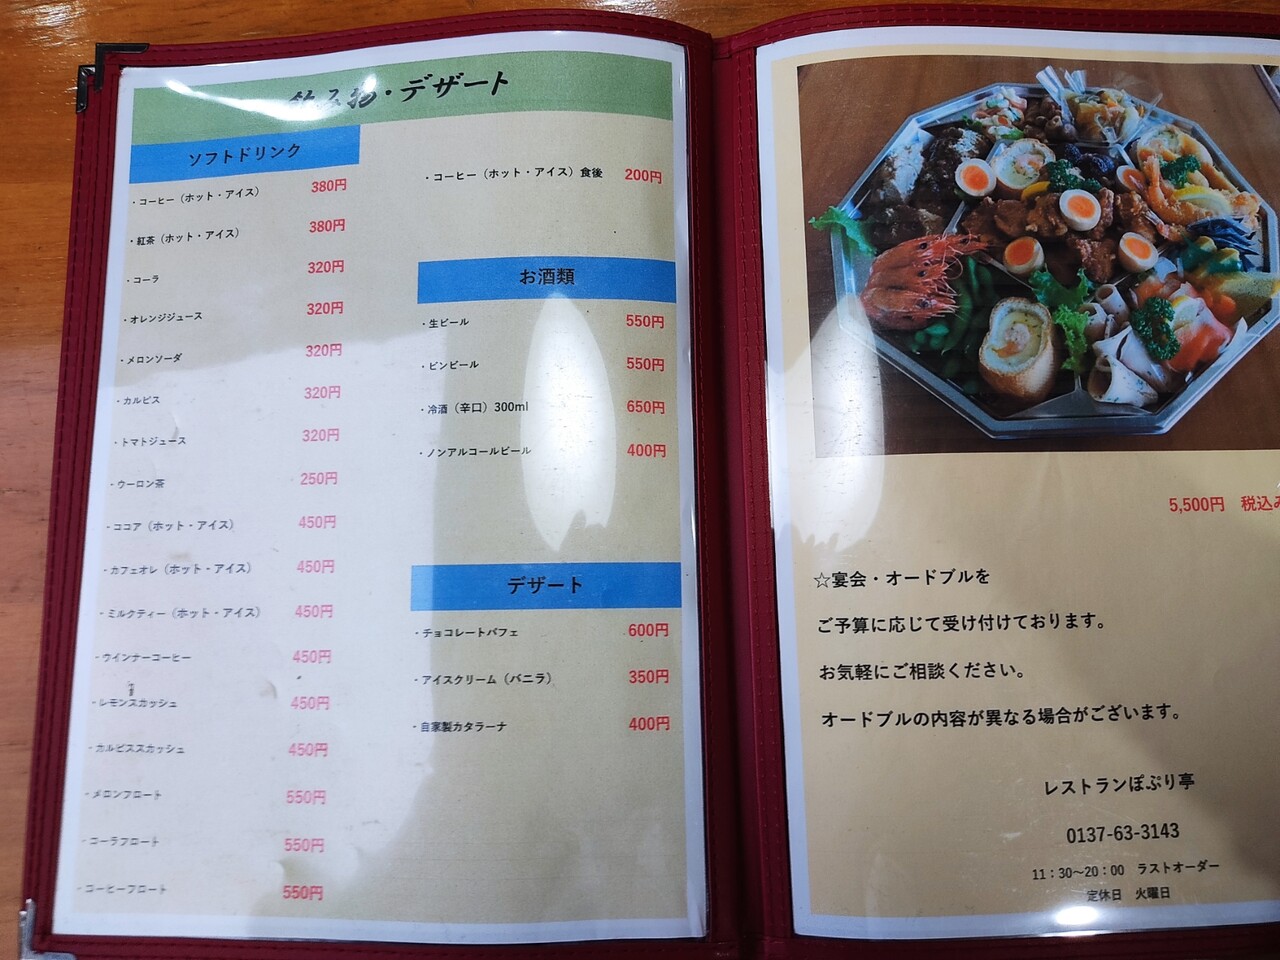 飲み物・デザート
ソフトドリンク
・コーヒー（ホット・アイス） 380円
・紅茶（ホット・アイス） 380円
・コーラ 320円
・オレンジジュース 320円
・メロンソーダ 320円
・カルピス 320円
・トマトジュース 320円
・ウーロン茶 250円
・ココア（ホット・アイス） 450円
・カフェオレ（ホット・アイス） 450円
・ミルクティー（ホット・アイス） 450円
・ウインナーコーヒー 450円
・レモンスカッシュ 450円
・カルピススカッシュ 450円
・メロンフロート 550円
・コーラフロート 550円
・コーヒーフロート 550円
・コーヒー（ホット・アイス）食後 200円
お酒類
・生ビール 550円
・ビンビール 550円
・冷酒（辛口）300ml 650円
・ノンアルコールビール 400円
デザート
・チョコレートパフェ 600円
・アイスクリーム（バニラ） 350円
・自家製カタラーナ 400円
5,500円 税込み
☆宴会・オードブルを
ご予算に応じて受け付けております。
お気軽にご相談ください。
オードブルの内容が異なる場合がございます。
レストランぽぷり亭
0137-63-3143
11：30～20：00 ラストオーダー
定休日 火曜日